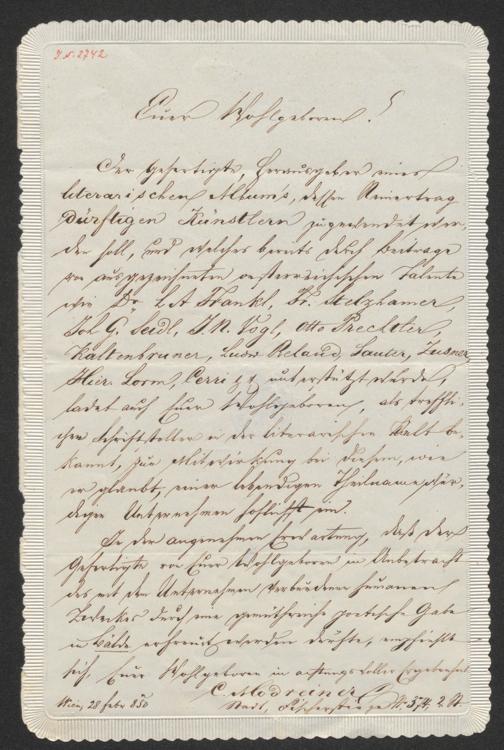 J.N. 2742
Euer Wohlgeboren!
Der Gefertigte, Herausgeber eines
literarischen Albums, dessen Reinertrag
dürftigen Künstlern zugewendet wer-
den soll, und welches bereits durch Beiträge
von ausgezeichneten oesterreichischen Talente
wie Dr. L. A. Frankl, Fr. Stelzhamer,
Joh. G. Seidl, J. N. Vogl, Otto Prechtler,
Kaltenbruner, Ludw. Reland, Sauter, Zusner,
Hier. Lorm, Cerri unterstützt wurde,
ladet auch Euer Wohlgeboren, als treffli-
chen Schriftsteller in der literarischen Welt be-
kannt, zur Mitwirkung bei diesem, wie
er glaubt, einer lebendigen Theilnahme
Unternehmen höflichst ein.
In der angenehmen Erwartung, daß der
Gefertigte von Euer Wohlgeboren in Anbetracht
des mit dem Unternehmen verbundenen humanen
Zweckes durch eine gemüthreiche poetische Gabe
in Bälde erfreut werden dürfte, empfiehlt
sich Euer Wohlgeboren in achtungsvoller Ergebenheit
C. Modreiner
Wien, 28 Febr 850
Stadt, No. 374, 2. St.